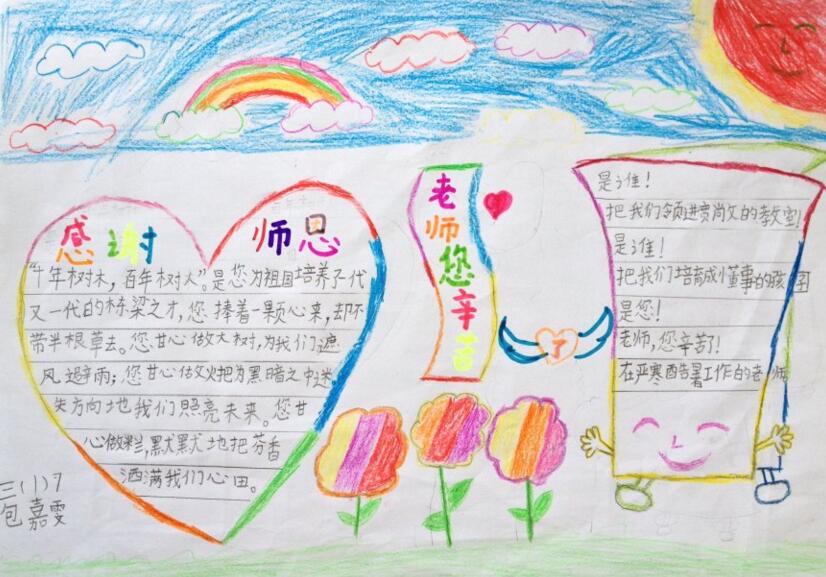 感谢 师恩
"十年树木，百年树人"。是您为祖国培养了一代
又一代的栋梁之才，您捧着一颗心来，却不
带半根草去。您甘心做大树，为我们遮
风避雨；您甘心做火把为黑暗之中迷
失方向地我们照亮未来。您甘
心做兰，默默地把芳香
洒满我们心田。
三(1)7
包嘉雯
老师您辛苦
了
是谁！
把我们领进尚文的教室！
是谁！
把我们培育成懂事的孩子
是您！
老师，您辛苦了！
在严寒酷暑工作的老师